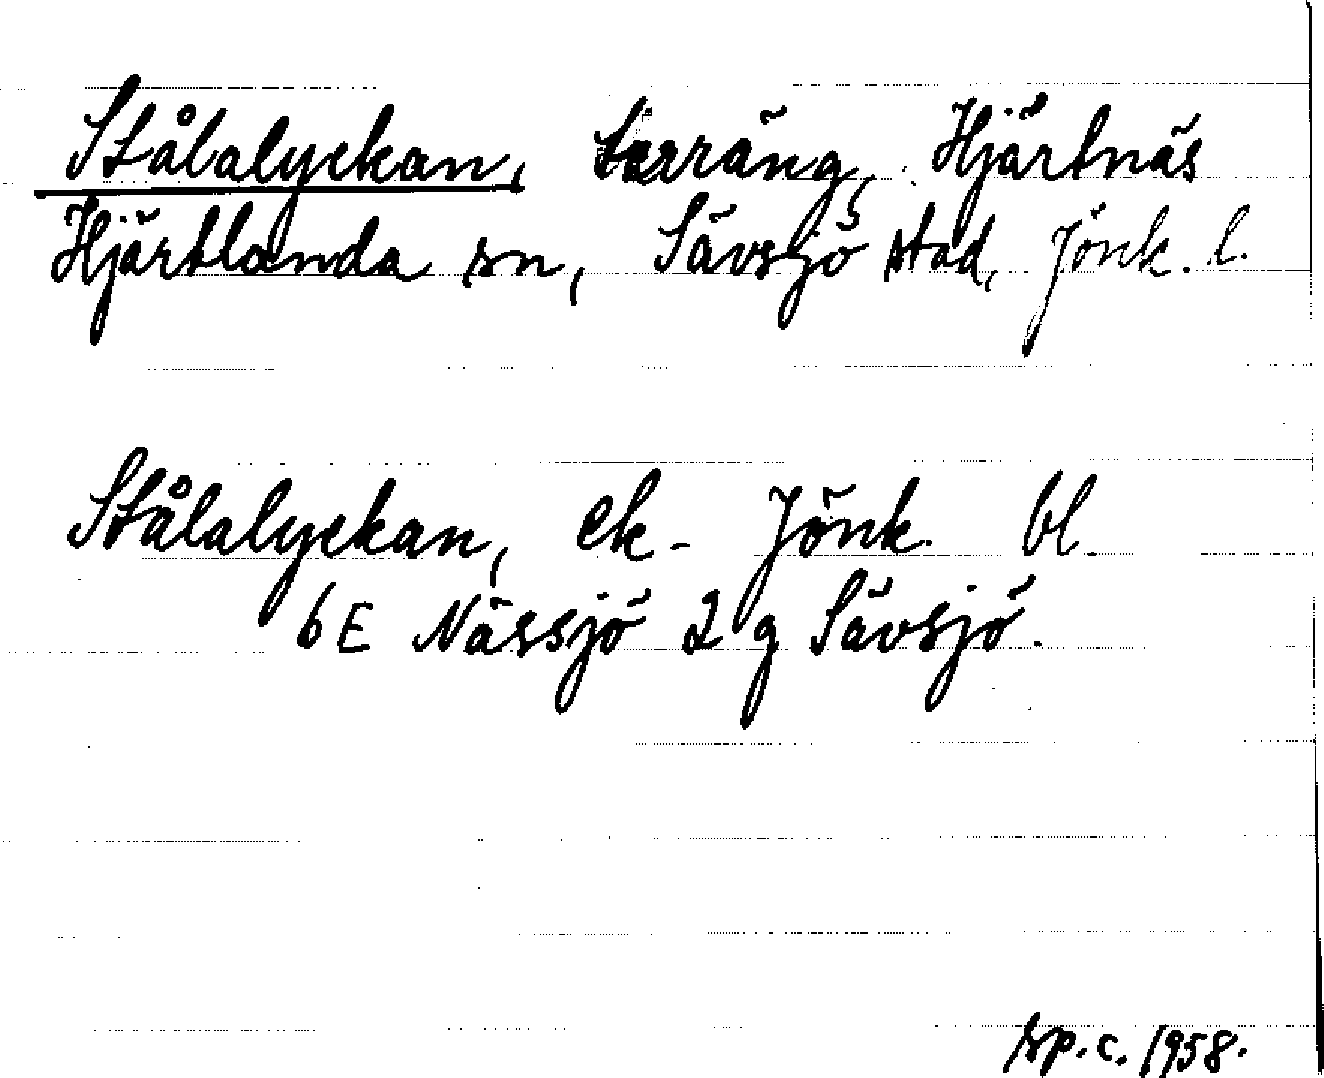 Stålalyckan, terräng, Hjärtnäs
Hjärtlanda sn, Sävsjö stad, Jönk. l.
Stålalyckan, ek - Jönk. bl
6E Nässjö 2 g Sävsjö.
sp.c. 1958.